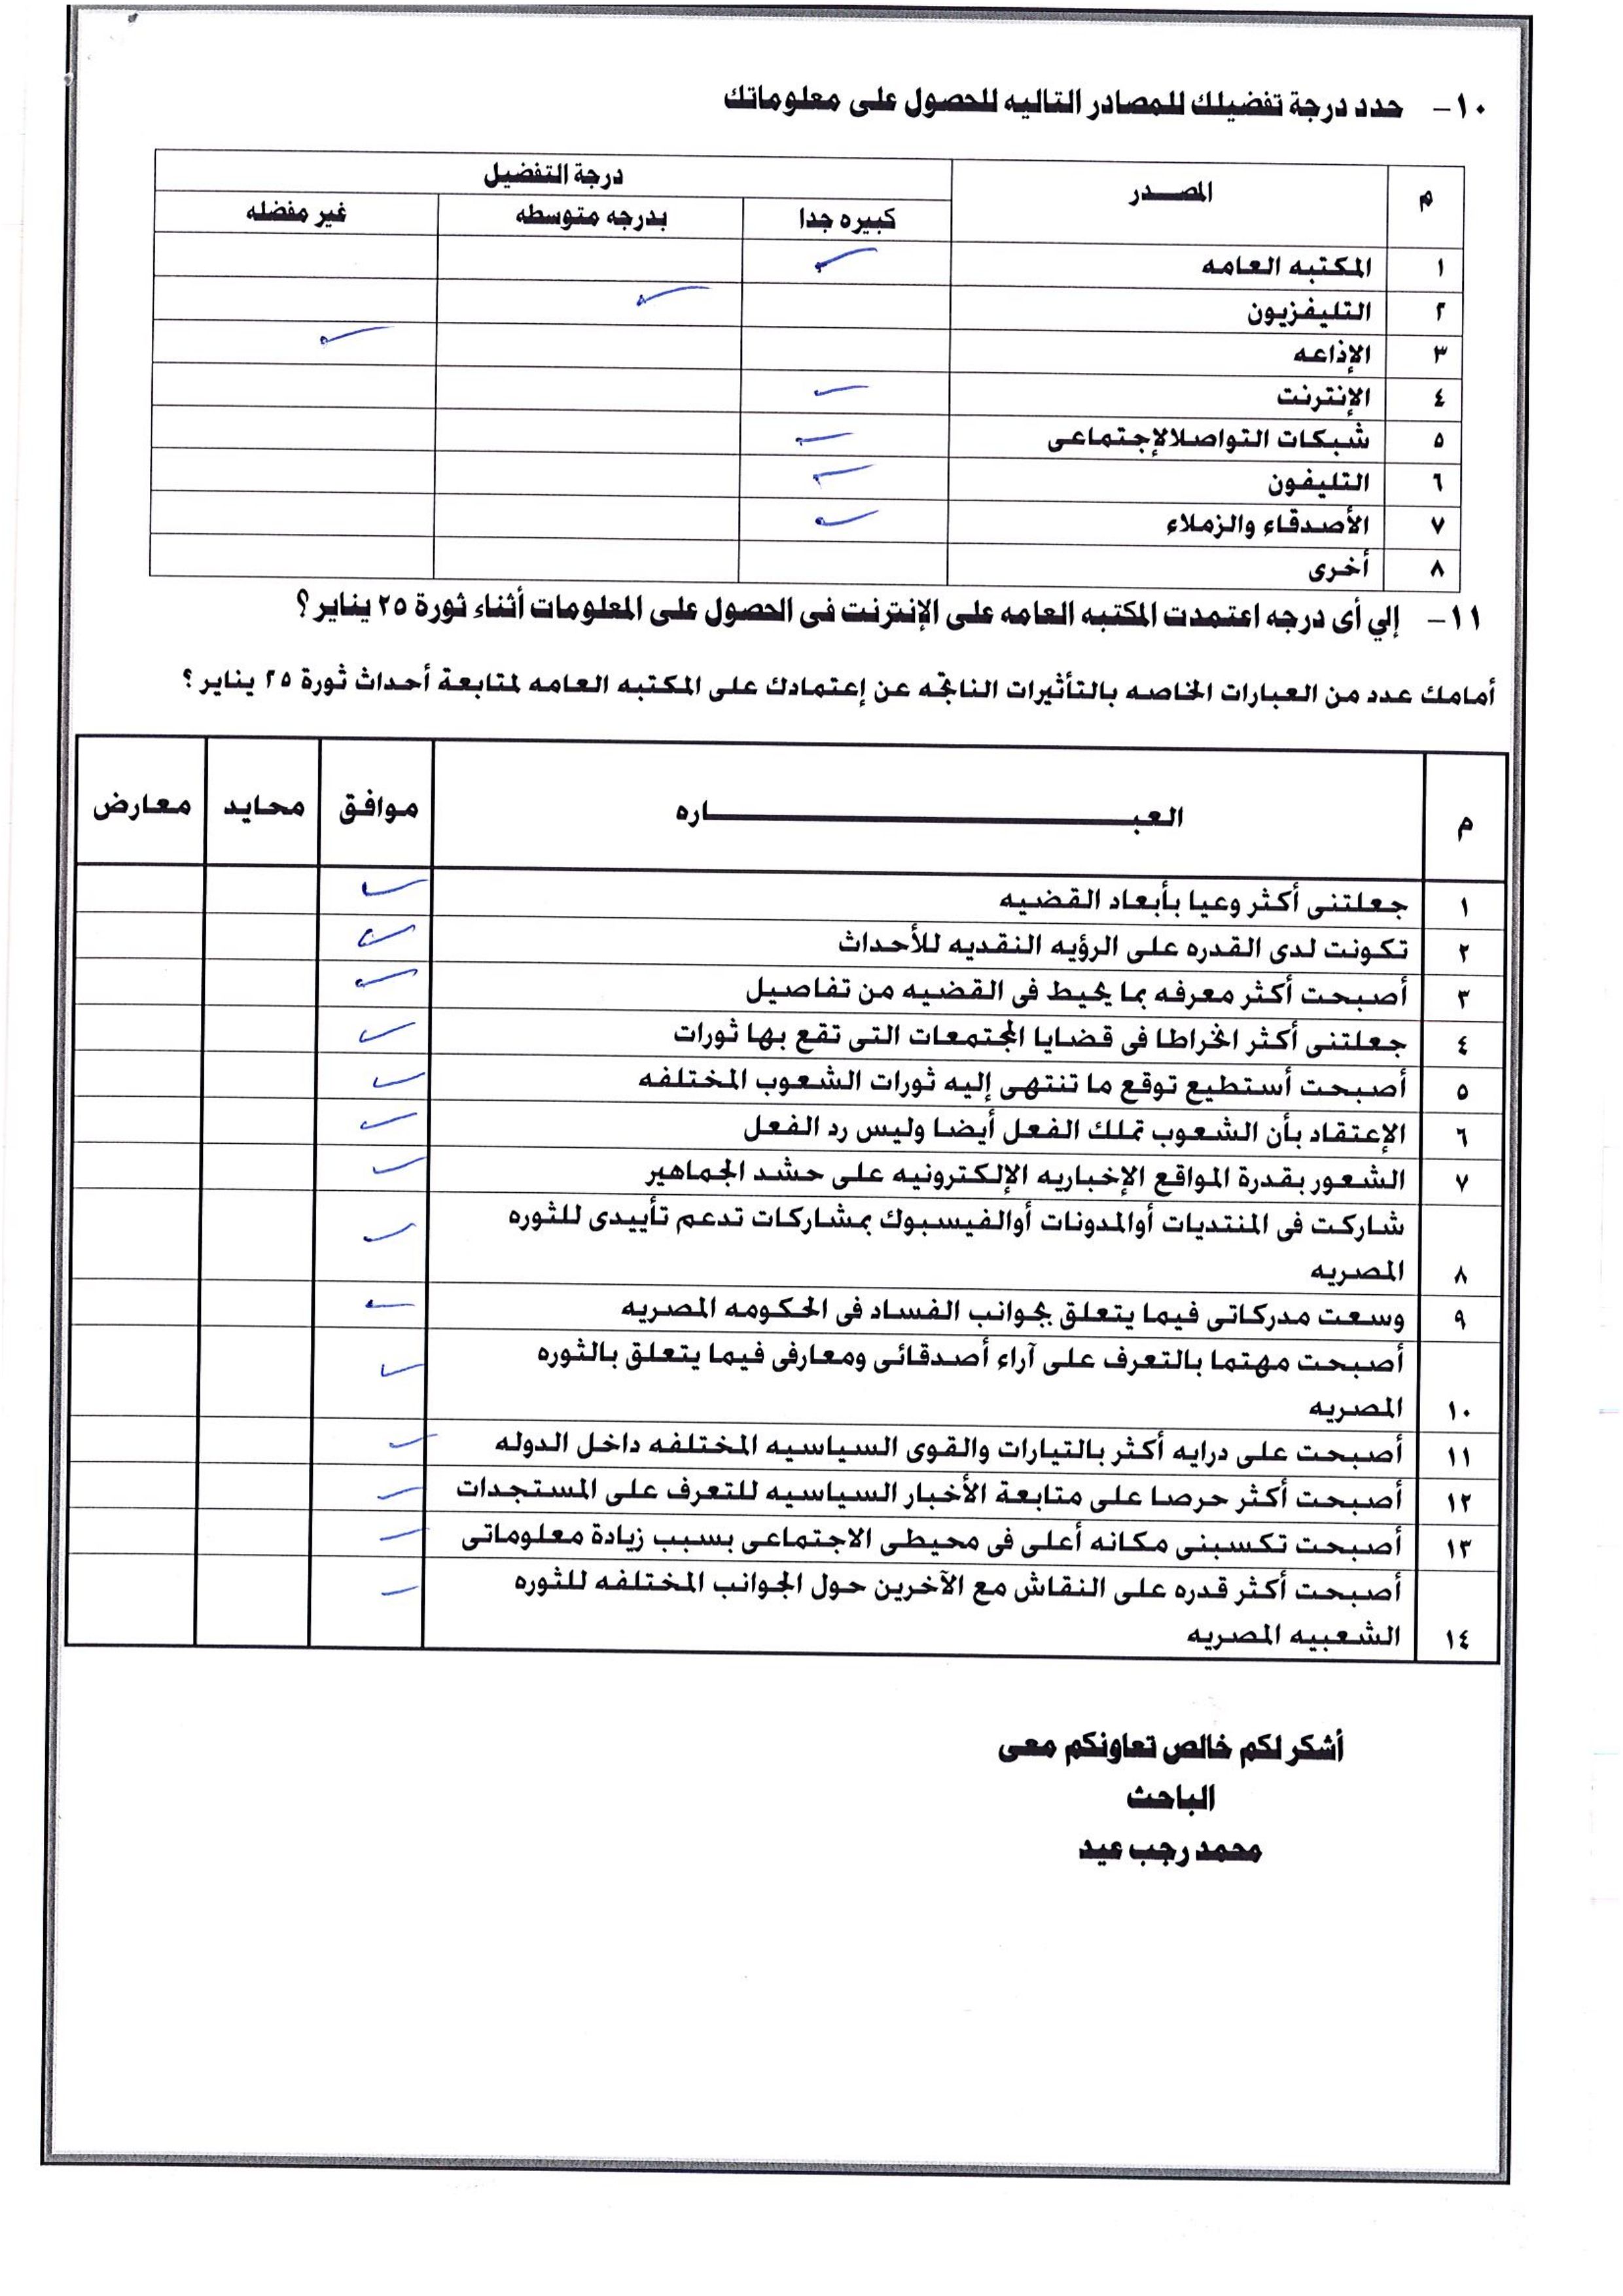 ١٠- حدد درجة تفضيلك للمصادر التاليه للحصول على معلوماتك
م المصـــدر درجة التفضيل
كبيره جدا بدرجه متوسطه غير مفضله
١ المكتبه العامه ✓
٢ التليفزيون ✓
٣ الإذاعه ✓
٤ الإنترنت ✓
٥ شبكات التواصلالإجتماعى ✓
٦ التليفون ✓
٧ الأصدقاء والزملاء ✓
٨ أخرى
١١- إلي أى درجه اعتمدت المكتبه العامه على الإنترنت فى الحصول على المعلومات أثناء ثورة ٢٥ يناير ؟
أمامك عدد من العبارات الخاصه بالتأثيرات الناتجه عن إعتمادك على المكتبه العامه لمتابعة أحداث ثورة ٢٥ يناير ؟
م العبـــــــــــــــــــــــــاره موافق محايد معارض
١ جعلتنى أكثر وعيا بأبعاد القضيه ✓
٢ تكونت لدى القدره على الرؤيه النقديه للأحداث ✓
٣ أصبحت أكثر معرفه بما يحيط فى القضيه من تفاصيل ✓
٤ جعلتنى أكثر انخراطا فى قضايا المجتمعات التى تقع بها ثورات ✓
٥ أصبحت أستطيع توقع ما تنتهى إليه ثورات الشعوب المختلفه ✓
٦ الإعتقاد بأن الشعوب تملك الفعل أيضا وليس رد الفعل ✓
٧ الشعور بقدرة المواقع الإخباريه الإلكترونيه على حشد الجماهير ✓
شاركت فى المنتديات أوالمدونات أوالفيسبوك بمشاركات تدعم تأييدى للثوره ✓
٨ المصريه
٩ وسعت مدركاتى فيما يتعلق بجوانب الفساد فى الحكومه المصريه ✓
أصبحت مهتما بالتعرف على آراء أصدقائى ومعارفى فيما يتعلق بالثوره ✓
١٠ المصريه
١١ أصبحت على درايه أكثر بالتيارات والقوى السياسيه المختلفه داخل الدوله ✓
١٢ أصبحت أكثر حرصا على متابعة الأخبار السياسيه للتعرف على المستجدات ✓
١٣ أصبحت تكسبنى مكانه أعلى فى محيطى الاجتماعى بسبب زيادة معلوماتى ✓
أصبحت أكثر قدره على النقاش مع الآخرين حول الجوانب المختلفه للثوره ✓
١٤ الشعبيه المصريه
أشكر لكم خالص تعاونكم معى
الباحث
محمد رجب عيد